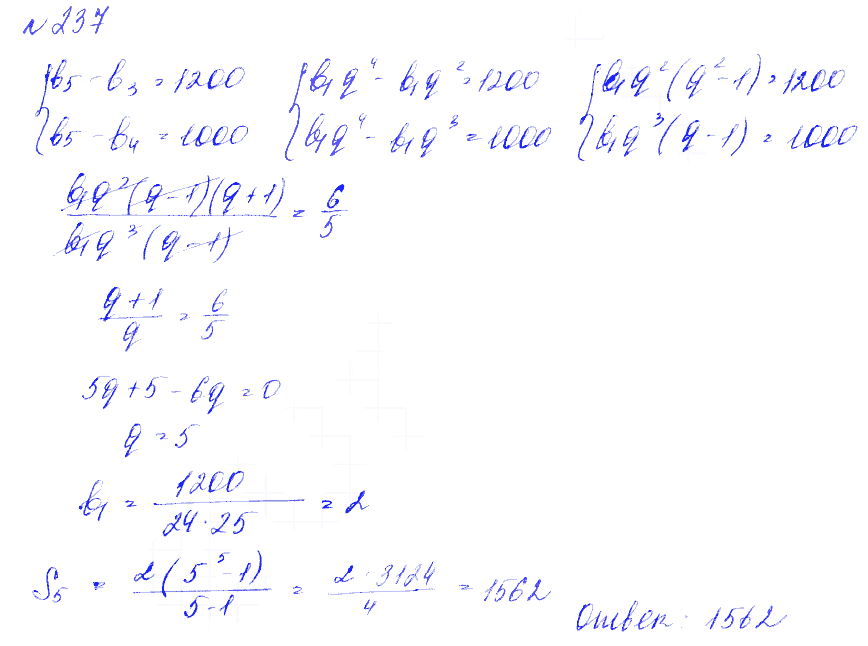 № 237
{ b₅ - b₃ = 1200 { b₁q⁴ - b₁q² = 1200 { b₁q²(q² - 1) = 1200
{ b₅ - b₄ = 1000 { b₁q⁴ - b₁q³ = 1000 { b₁q³(q - 1) = 1000
b₁q²(q - 1)(q + 1) / b₁q³(q - 1) = 6/5
(q + 1)/q = 6/5
5q + 5 - 6q = 0
q = 5
b₁ = 1200 / (24 · 25) = 2
S₅ = 2(5⁵ - 1) / (5 - 1) = 2 · 3124 / 4 = 1562
Ответ: 1562